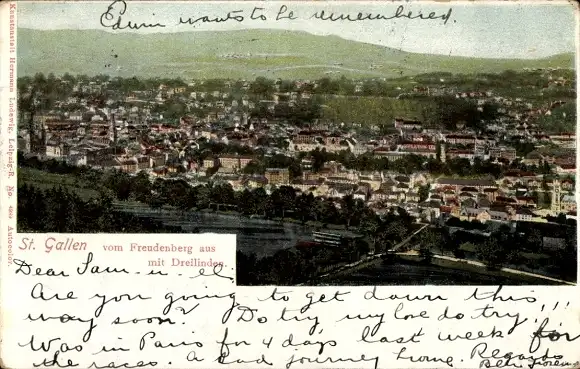 Edwin wants to be remembered.
Kunstanstalt Hermann Ludewig, Leipzig-R. No. Autocolor.
St. Gallen vom Freudenberg aus
mit Dreilinden
Dear Sam
Are you going to get down this
way soon? Do try my love do try, !!!
Was in Paris for 4 days last week for
the races. A bad journey home. Regards